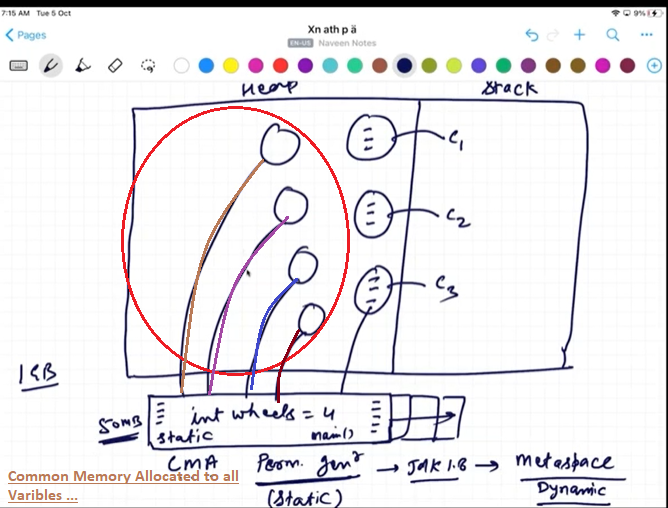 7:15 AM Tue 5 Oct
9%
Pages
Xn ath p ä
EN-US Naveen Notes
Heap
Stack
C1
C2
C3
1GB
50MB
int wheels = 4
static
main()
CMA
Perm. genⁿ → JDK 1.8 → Metaspace
(static)
Dynamic
Common Memory Allocated to all
Varibles ...